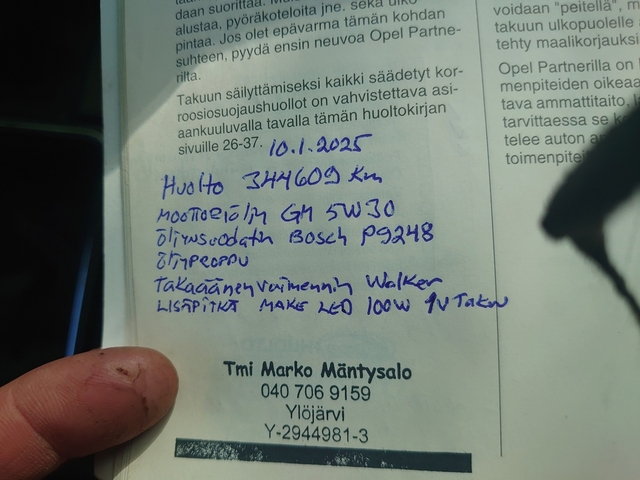 daan suorittaa.
alustaa, pyöräkoteloita jne. sekä ulko
pintaa. Jos olet epävarma tämän kohdan
suhteen, pyydä ensin neuvoa Opel Partne-
rilta.
Takuun säilyttämiseksi kaikki säädetyt kor-
roosiosuojaushuollot on vahvistettava asi-
aankuuluvalla tavalla tämän huoltokirjan
sivuille 26-37.
10.1.2025
Huolto 344609 Km
moottoriöljy GM 5W30
öljynsuodatin Bosch P9248
öljyproppu
Takaäänenvaimennin Walker
LISÄPITKÄ MAKE LED 100W 1V Takuu
Tmi Marko Mäntysalo
040 706 9159
Ylöjärvi
Y-2944981-3
voidaan "peitellä",
takuun ulkopuolelle
tehty maalikorjauksi
Opel Partnerilla on
menpiteiden oikeaa
tava ammattitaito,
tarvittaessa se
telee auton
toimenpitei